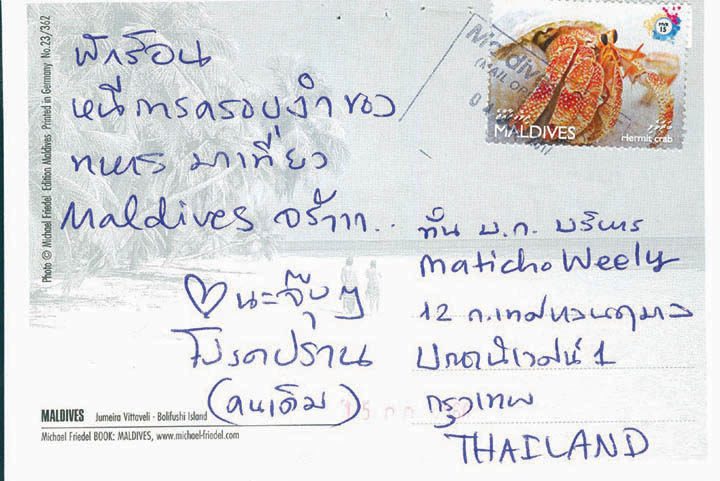 Photo © Michael Friedel Edition Maldives Printed in Germany No.23/362
พักร้อน
หนีการครอบงำของ
ทหาร มาเที่ยว
Maldives จร้าาา..
♡นะจุ๊บๆ
โปรดปราน
(คนเดิม)
MALDIVES Jumeira Vittaveli - Bolifushi Island
Michael Friedel BOOK: MALDIVES, www.michael-friedel.com
MVR 15
MALDIVES
Hermit crab
ท่าน บ.ก. บริหาร
Maticho Weely
12 ถ.เทศบาลนฤมาล
ประชานิเวศน์ 1
กรุงเทพ
THAILAND